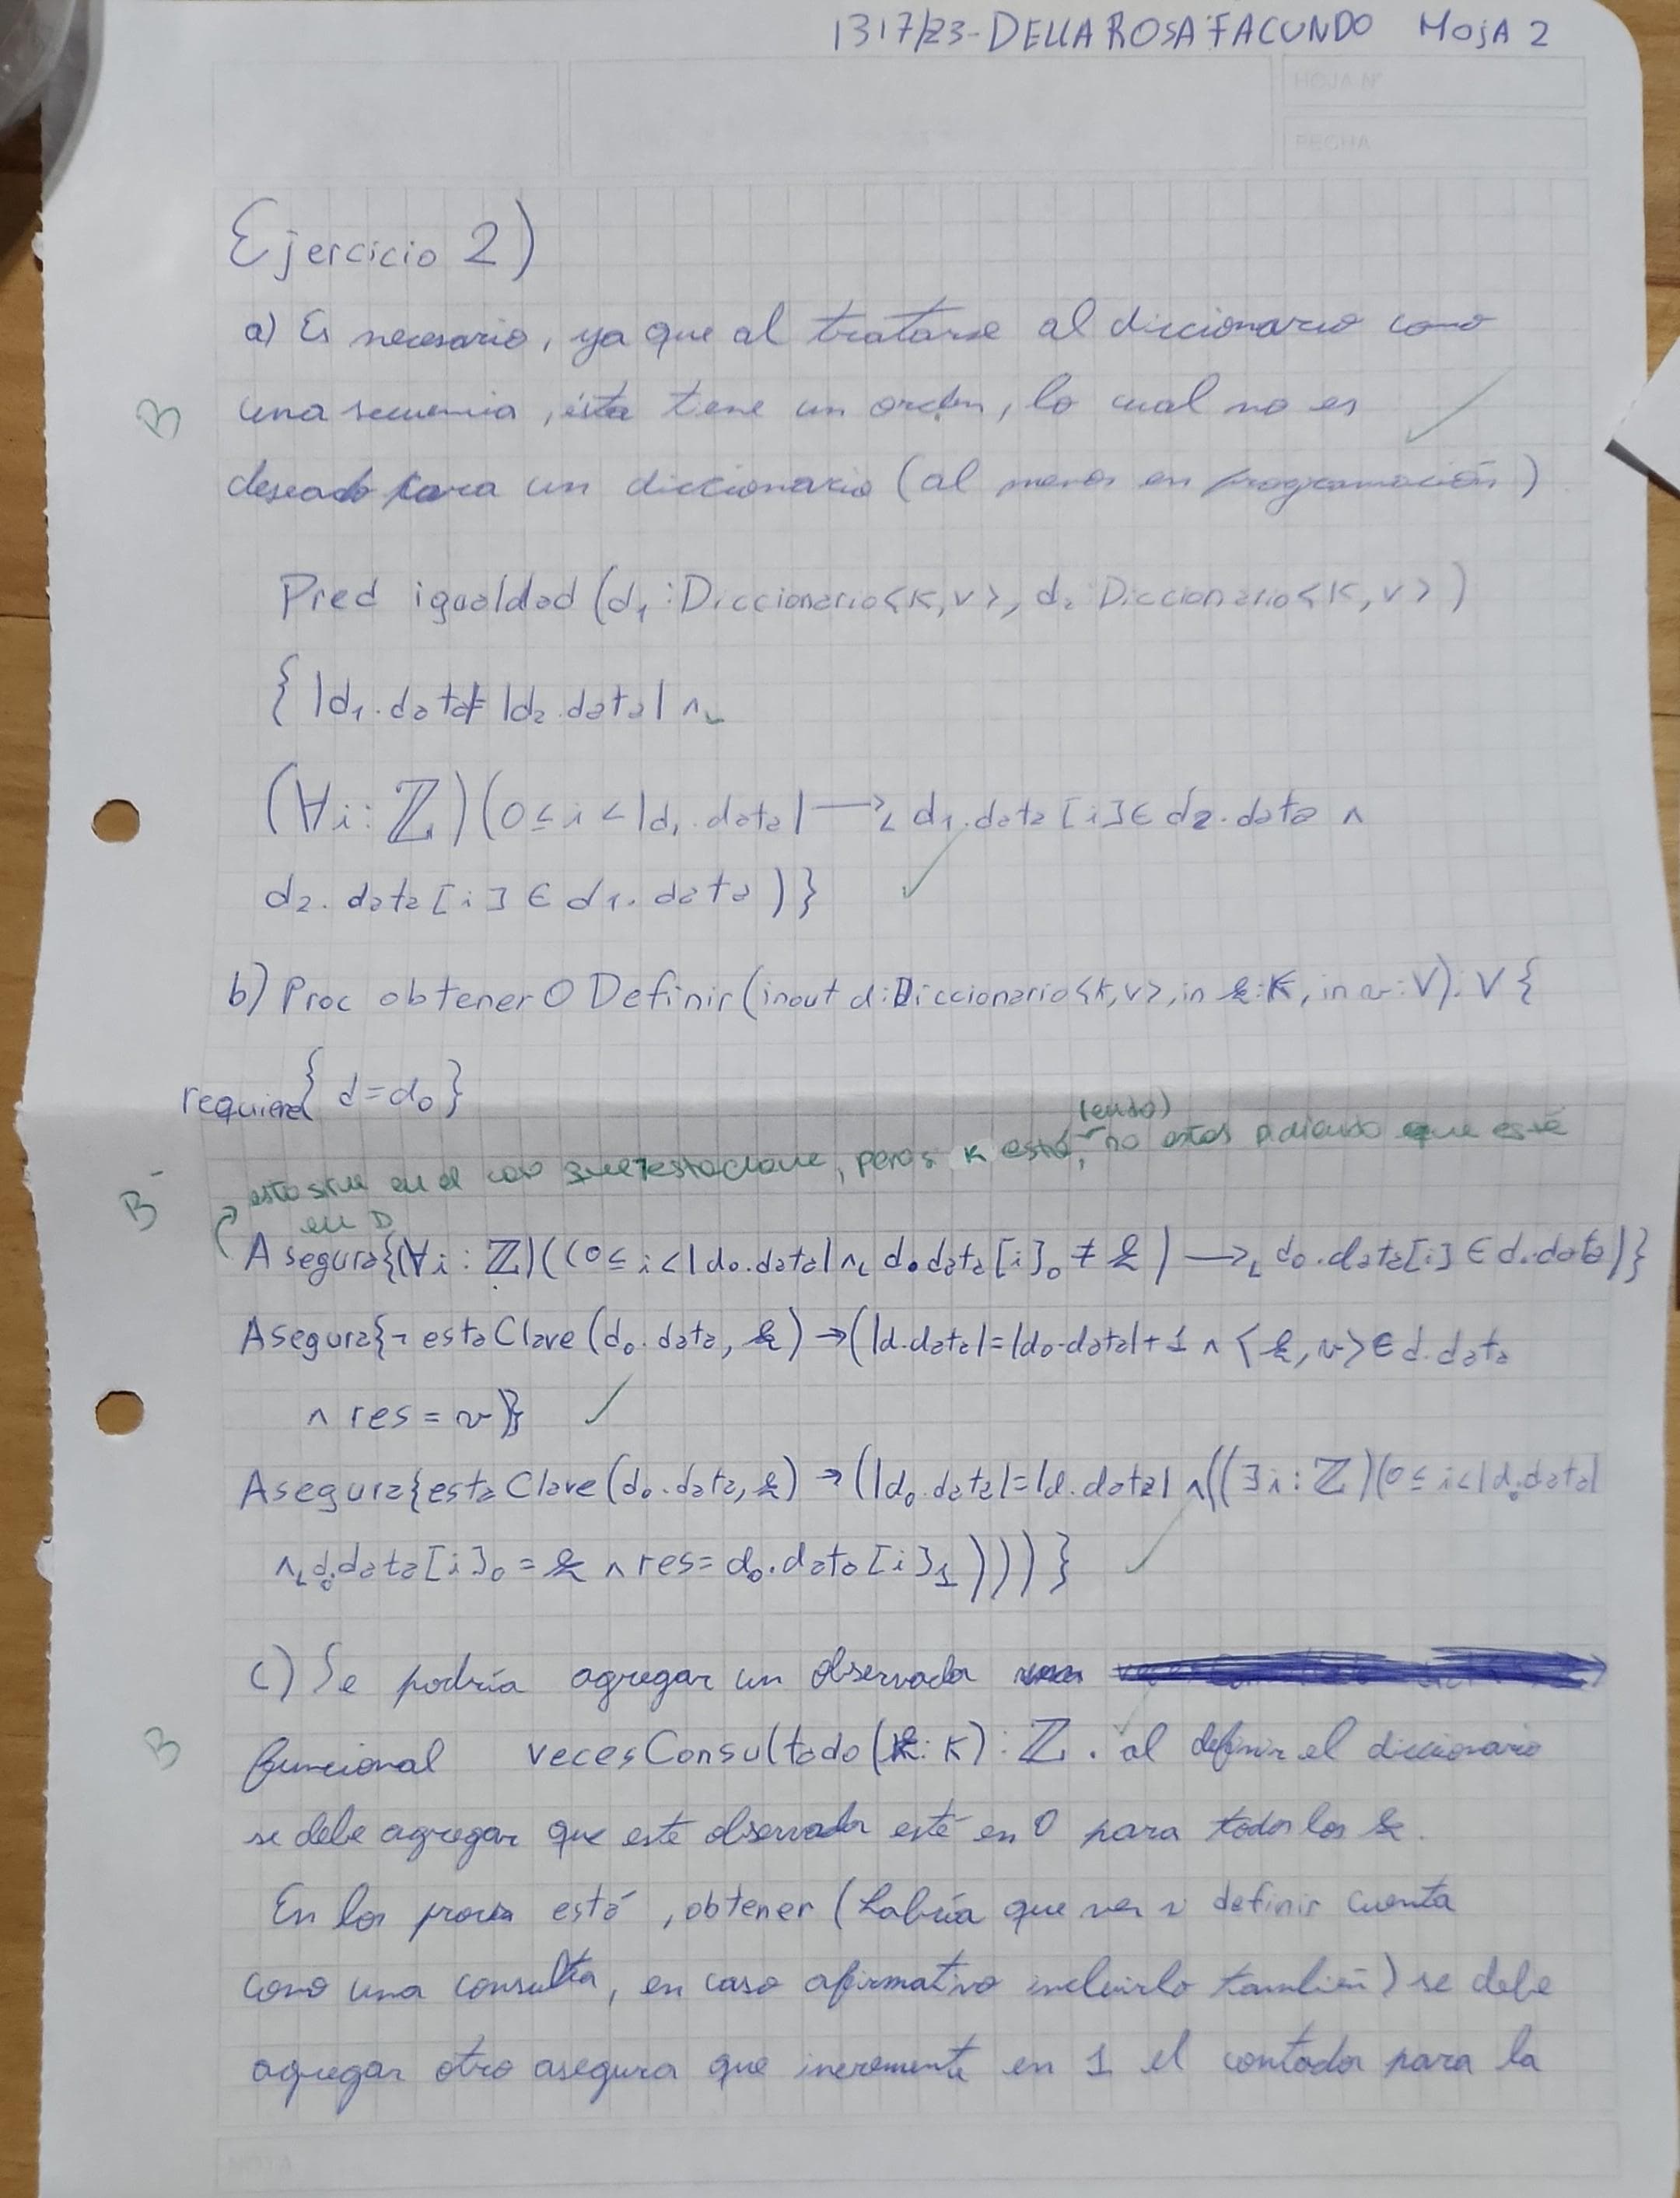 1317/23-DELLA ROSA FACUNDO HOJA 2
HOJA Nº
FECHA
Ejercicio 2)
a) Es necesario, ya que al tratarse al diccionario como
B
una secuencia, ésta tiene un orden, lo cual no es
deseado para un diccionario (al menos en programación)
Pred igualdad (d₁: Diccionario<K,V>, d₂ Diccionario<K,V>)
{ |d₁.data|=|d₂.data| ∧L
(∀i: ℤ)(0≤i<|d₁.data| →L d₁.data[i]∈d₂.data ∧
d₂.data[i]∈d₁.data)}
b) Proc obtenerODefinir(inout d:Diccionario<K,V>, in k:K, in v:V): V {
requiere{ d=d₀}
esto sirve en el caso que ¬estaclave, pero si k está, (en d₀) no estás pidiendo que esté
B⁻
en D
Asegura{(∀i: ℤ)((0≤i<|d₀.data| ∧L d₀.data[i]₀≠k) →L d₀.data[i]∈d.data)}
Asegura{¬estaClave(d₀.data, k) →(|d.data|=|d₀.data|+1 ∧ <k,v>∈d.data
∧ res = v)}
Asegura{estaClave(d₀.data, k) →(|d₀.data|=|d.data| ∧((∃i: ℤ)(0≤i<|d₀.data|
∧L d₀.data[i]₀=k ∧ res= d₀.data[i]₁))))}
c) Se podría agregar un observador
B
funcional vecesConsultado(k: K): ℤ. al definir el diccionario
se debe agregar que este observador esté en 0 para todos los k.
En los procs está, obtener (habría que ver si definir cuenta
como una consulta, en caso afirmativo incluirlo también) se debe
agregar otro asegura que incremente en 1 el contador para la